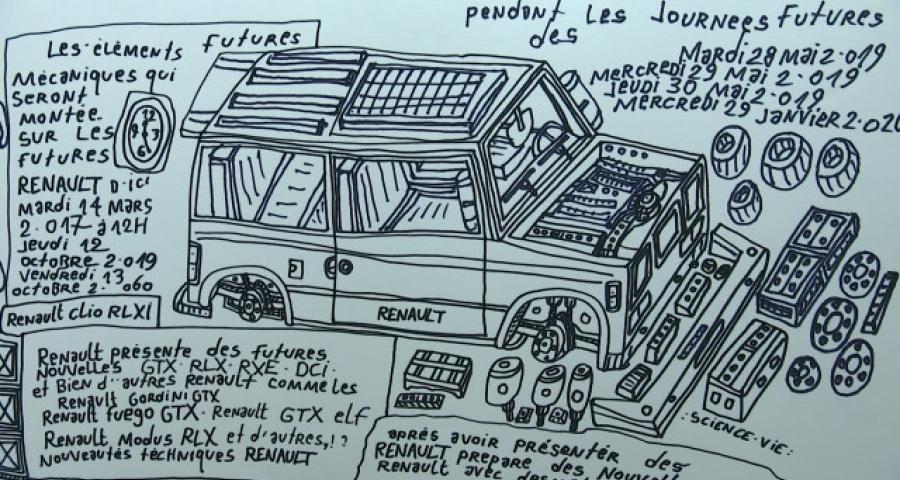 Les éléments futures
Mécaniques qui
seront
montée
sur les
futures
RENAULT D'ici
mardi 14 mars
2.017 à 12H
jeudi 12
octobre 2.019
vendredi 13
octobre 2.060
Renault clio RLXI
pendant Les Journees futures
des
Mardi 28 mai 2.019
Mercredi 29 Mai 2.019
jeudi 30 Mai 2.019
Mercredi 29 janvier 2.020
12
3
6
9
RENAULT
Renault présente des futures
nouvelles GTX.RLX.RXE.DCi.
et Bien d'autres Renault comme les
Renault Gordini GTX
Renault fuego GTX. Renault GTX elf
Renault Modus RLX et d'autres,!?
Nouveautés téchniques RENAULT
:SCIENCE.VIE:
après avoir présentér des
RENAULT prepare des Nouvell
Renault avec des